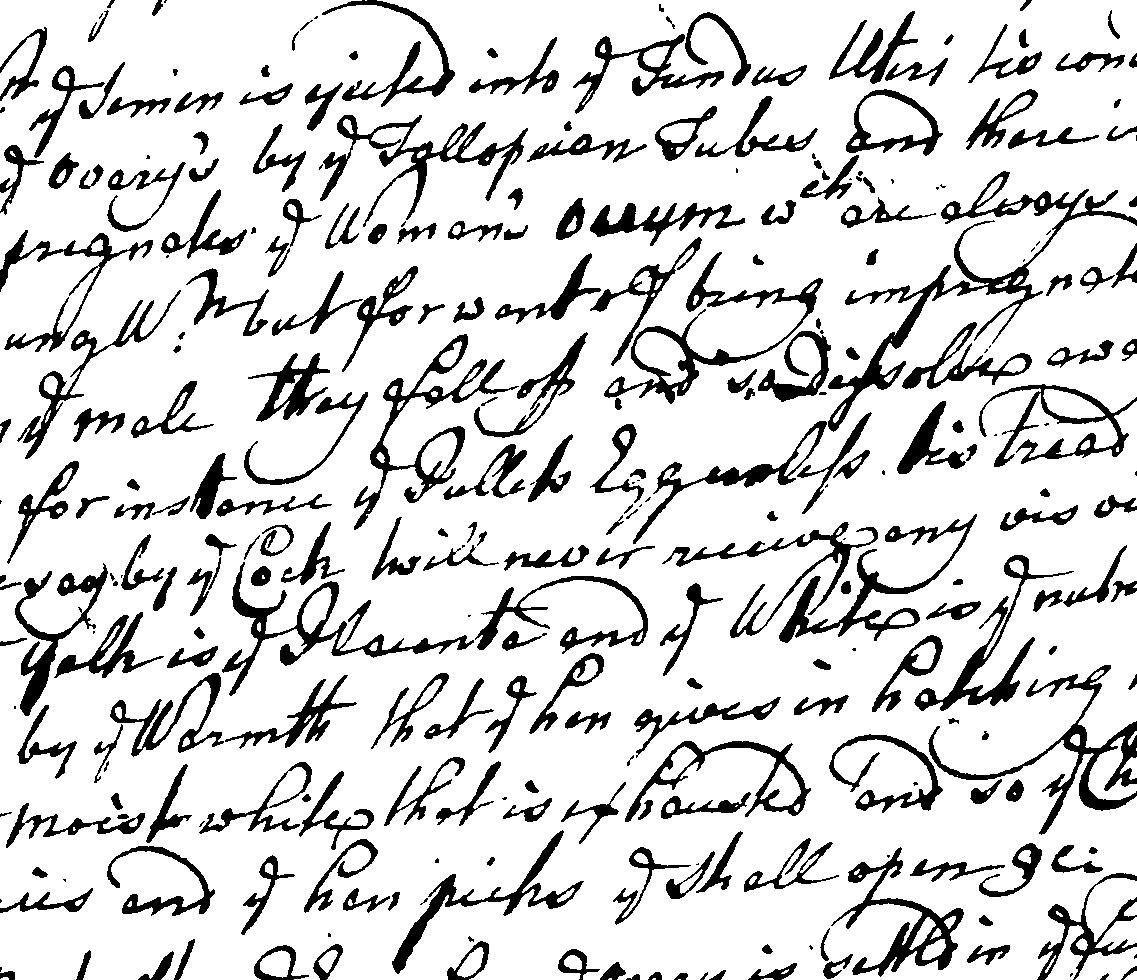 ye Semen is ejected into ye Fundus Uteri tis
ye Ovary's by ye Fallopian Tubes and there
pregnates ye Woman's Ovum wch are always
but for want of being impregnat
ye male they fall off and so dissolve awa
for instance ye Pullets Egg unless tis tread
by ye Cock will never receive any vis
yelk is ye Placenta and ye White is ye nutri
by ye Warmth that ye hen gives in hatching
moist white that is exhausted and so ye
and ye hen picks ye shell open
is settled in ye